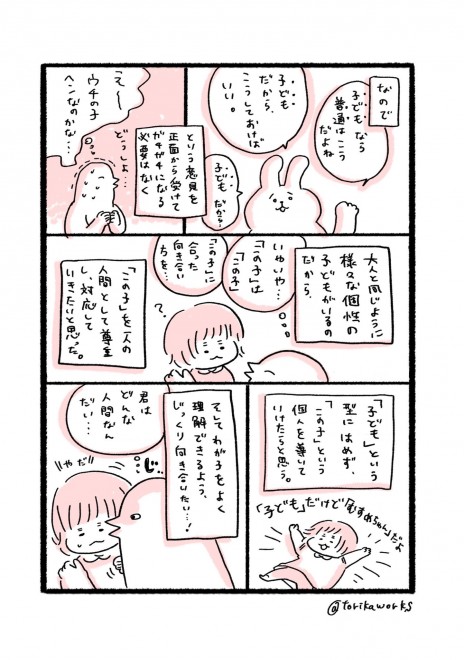 なので
子どもなら
普通はこう
だよね
子ども
だから、
こうしておけば
いい。
子ども
だから…
という意見を
正面から受けて
ガチガチになる
必要はなく
え〜
ウチの子
ヘンなのかな…
どうしよ…
大人と同じように
様々な個性の
子どもがいるの
だから、
いやいや…
「この子」は
「この子」
「この子」に
合った
向き合い
方を…
?
「この子」を一人の
人間として尊重
し、対応して
いきたいと思った。
「子ども」という
型にはめず、
「この子」という
個人を導いて
いけたらと思う。
「子ども」だけど「むすめちゃん」だよ
そしてわが子をよく
理解できるよう、
じっくり向き合いたい…!
君は
どんな
人間なん
だい…
じ…
やだ
@torikaworks